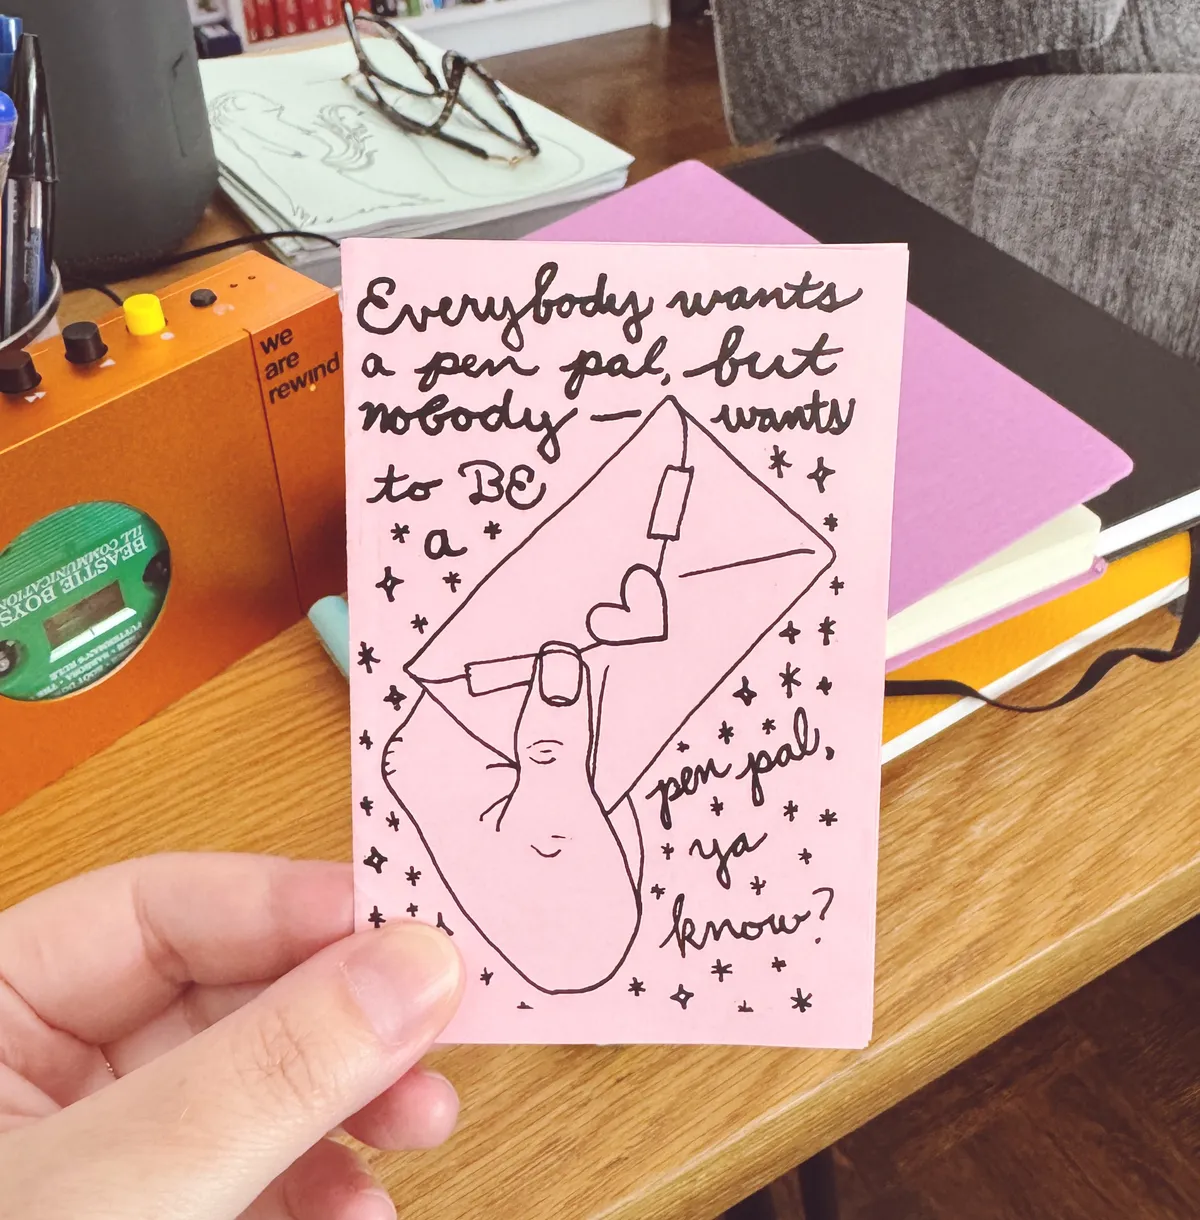 Everybody wants
a pen pal, but
nobody — wants
to BE
a
pen pal,
ya
know?
we
are
rewind
BEASTIE BOYS
ILL COMMUNICATION